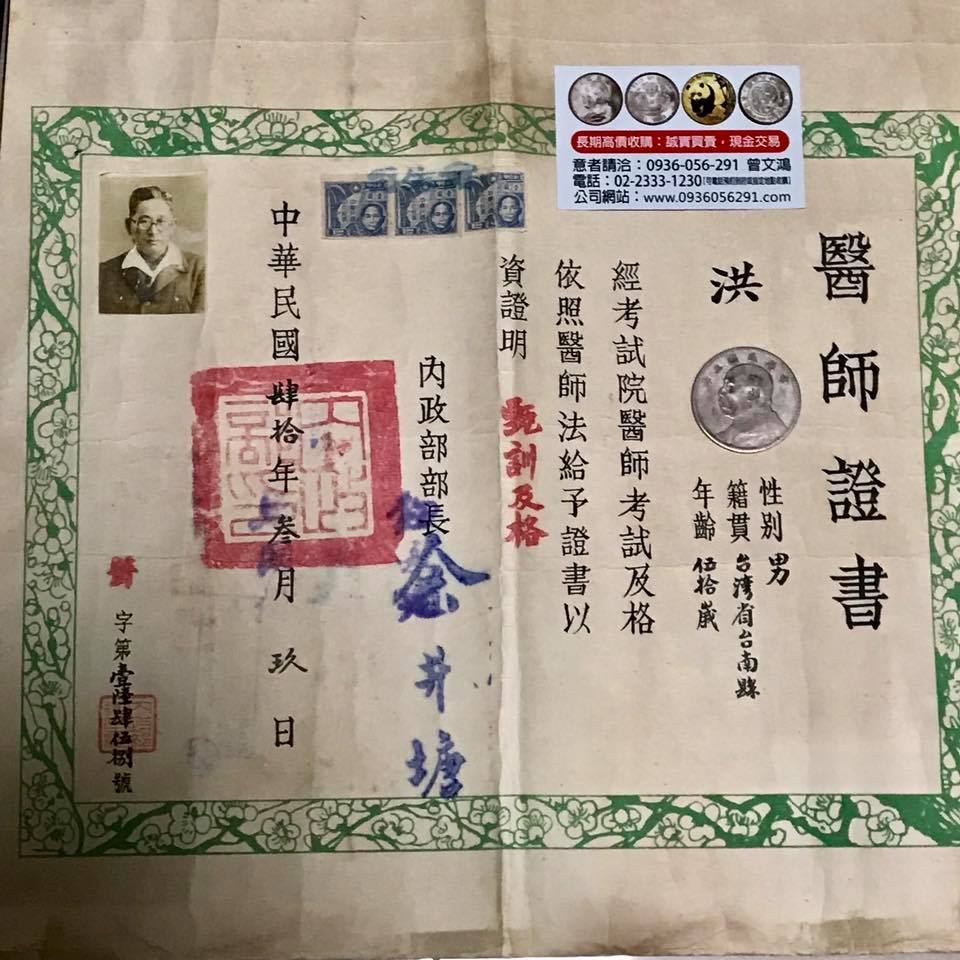 長期高價收購：誠實買賣，現金交易
意者請洽：0936-056-291 曾文鴻
電話：02-2333-1230
公司網站：www.0936056291.com
醫師證書
洪
性別 男
籍貫 台灣省台南縣
年齡 伍拾歲
經考試院醫師考試及格
依照醫師法給予證書以
資證明
甄訓及格
內政部部長
余井塘
中華民國肆拾年叁月玖日
醫字第壹陸肆伍捌號